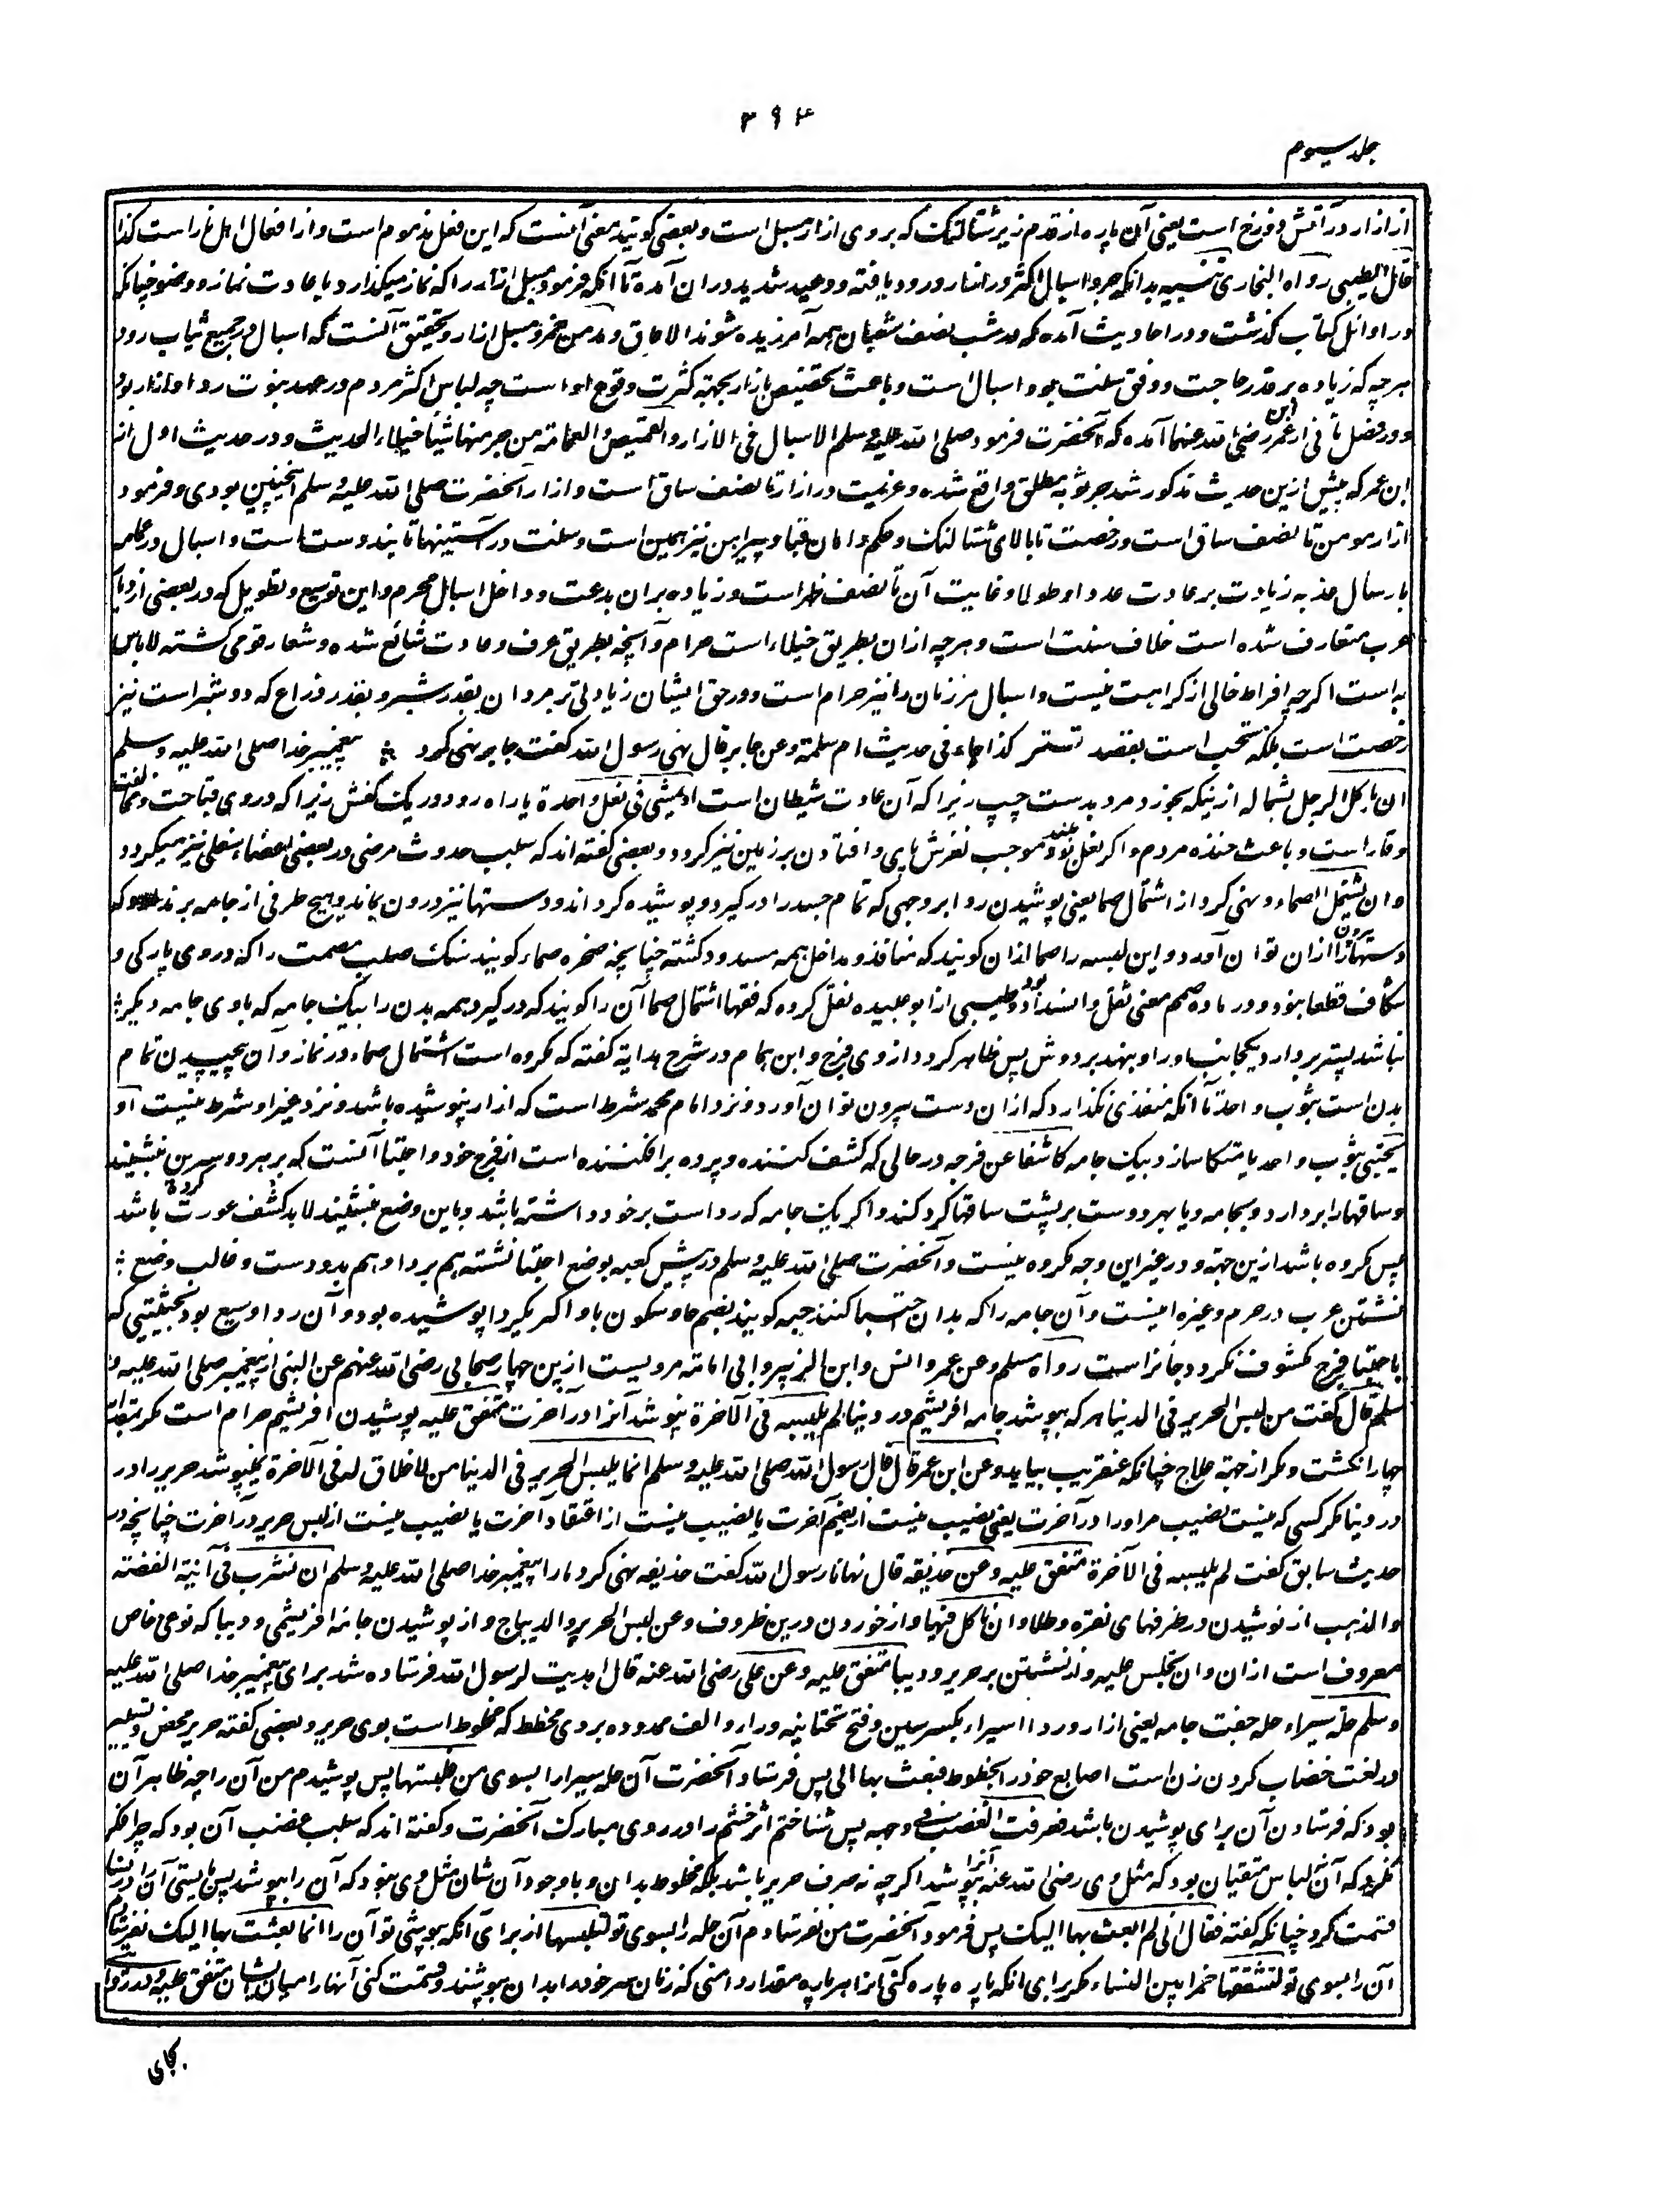 ۳۹۴
جلد سیوم
از ازار در آتش دوزخ است یعنی آن پاره از قدم زیر شتالنگ که بروی ازار مسبل است و بعضی گویند معنی آنست که این فعل مذموم است و از افعال اهل نار است کذا
قال الطیبی رواه البخاری تنبیه بدانکه جر و اسبال اکثر در ازار ورود یافته و وعید شدید در ان آمده تا آنکه فرمود مسبل ازار را که نماز میگذارد با عادت نماز و وضو چنانکه
در اوائل کتاب گذشت و در احادیث آمده که در شب نصف شعبان همه آمرزیده شوند الا عاق و مدمن خمر و مسبل ازار و تحقیق آنست که اسبال در جمیع ثیاب رود
هر چه که زیاده بر قدر حاجت و وفق سنت بود اسبال است و باعث تخصیص بازار بجهة کثرت وقوع او است چه لباس اکثر مردم در عهد نبوت ردا و ازار بود
و در فصل ثانی از ابن عمر رضی الله عنهما آمده که آنحضرت فرمود صلی الله علیه وسلم الاسبال فی الازار والقمیص والعمامة من جر منها شیئا خیلاء الحدیث و در حدیث اول از
ابن عمر که پیش ازین حدیث مذکور شد جر ثوبه مطلق واقع شده و عزیمت در ازار تا نصف ساق است و ازار آنحضرت صلی الله علیه وسلم آنچنین بودی و فرمود
ازار مومن تا نصف ساق است و رخصت تا بالای شتالنگ و حکم دامان قبا و پیراهن نیز همین است و سنت در آستینها تا بند دست است و اسبال در عمامه
بارسال عذبه زیادت بر عادت عددا و طولا و غایت آن تا نصف ظهر است و زیاده بران بدعت و داخل اسبال محرم و این توسیع و تطویل که در بعضی از دیار
عرب متعارف شده است خلاف سنت است و هر چه ازان بطریق خیلاء است حرام و آنچه بطریق عرف و عادت شائع شده و شعار قومی گشته لا باس
به است اگرچه افراط خالی از کراهت نیست و اسبال مر زنان را نیز حرام است و در حق ایشان زیادتی بر مردان بقدر شبر و بقدر ذراع که دو شبر است نیز
رخصت است بلکه مستحب است بقصد تستر کذا جاء فی حدیث ام سلمة وعن جابر قال نهی رسول الله گفت جابر نهی کرد پیغمبر خدا صلی الله علیه وسلم
ان یاکل الرجل بشماله ازینکه بخورد مرد بدست چپ زیرا که آن عادت شیطان است او یمشی فی نعل واحدة یا راه رود در یک کفش زیرا که در وی قباحت و مخالفت
وقار است و باعث خنده مردم و اگر نعل بلند بود موجب لغزش پای و افتادن بر زمین نیز گردد و بعضی گفته اند که سبب حدوث مرضی در بعضی اعضاء سفلی نیز میگردد
وان یشتمل الصماء و نهی کرد از اشتمال صما یعنی پوشیدن ردا بر وجهی که تمام جسد را در گیرد و پوشیده گرداند و دستها نیز درون بماند و هیچ طرفی از جامه بر ندارد که
دستها را ازان بیرون توان آورد و این لبسه را صما ازان گویند که منافذ و مداخل همه مسدود گشته چنانچه صخره صماء گویند سنگ صلب مصمت را که در وی پارگی و
شگاف قطعا نبود و در ماده صمم معنی ثقل و انسداد بود و طیبی از ابو عبیده نقل کرده که فقها اشتمال صما آن را گویند که در گیرد همه بدن را بیک جامه که باوی جامه دیگر
نباشد پستر بردارد یکجانب او را و بنهد بر دوش پس ظاهر گردد از وی فرج و ابن همام در شرح هدایة گفته که مکروه است اشتمال صماء در نماز و آن پیچیدن تمام
بدن است بثوب واحد تا آنکه منفذی نگذارد که ازان دست بیرون توان آورد و نزد امام محمد شرط است که ازار نپوشیده باشد و نزد غیر او شرط نیست او
یحتبی بثوب واحد یا متکا سازد بیک جامه کاشفا عن فرجه در حالی که کشف کننده و پرده بر افکننده است از فرج خود و احتبا آنست که بر هر دو سرین بنشیند
و ساقها را بردارد و بجامه و یا بهر دو دست بر پشت ساقها گرد کند و اگر یک جامه که ردا است برخود داشته باشد و باین وضع بنشیند لابد کشف عورت کرده باشد
پس مکروه باشد ازین جهة و در غیر این وجه مکروه نیست و آنحضرت صلی الله علیه وسلم در پیش کعبه بوضع احتبا نشسته هم بردا و هم بدو دست و غالب وضع
نشستن عرب در حرم و غیره اینست و آن جامه را که بدان احتبا کنند حبیه گویند بضم حا و سکون با و اگر یک ردا پوشیده بود و آن ردا وسیع بود بحیثیتی که
باحتبا فرج مکشوف نگردد جائز است رواه مسلم وعن عمر وانس وابن الزبیر وابی امامة مرویست ازین چهار صحابی رضی الله عنهم عن النبی از پیغمبر صلی الله علیه و
سلم قال گفت من لبس الحریر فی الدنیا هر که بپوشد جامه افریشم در دنیا لم یلبسه فی الآخرة نپوشد آنرا در آخرت متفق علیه پوشیدن افریشم حرام است مگر مقدار
چهار انگشت و مگر از جهة علاج چنانکه عنقریب بیاید وعن ابن عمر قال قال رسول الله صلی الله علیه وسلم انما یلبس الحریر فی الدنیا من لا خلاق له فی الآخرة نمی پوشد حریر را در
در دنیا مگر کسی که نیست نصیب مر اورا در آخرت یعنی نصیب نیست از نعیم آخرت یا نصیب نیست از اعتقاد آخرت یا نصیب نیست از لبس حریر در آخرت چنانچه در
حدیث سابق گفت لم یلبسه فی الآخرة متفق علیه وعن حذیفة قال نهانا رسول الله گفت حذیفه نهی کرد ما را پیغمبر خدا صلی الله علیه وسلم ان نشرب فی آنیة الفضة
والذهب از نوشیدن در ظرفهای نقره و طلا وان ناکل فیها و از خوردن درین ظروف وعن لبس الحریر والدیباج و از پوشیدن جامه افریشمی و دیبا که نوعی خاص
معروف است ازان وان نجلس علیه و از نشستن بر حریر و دیبا متفق علیه وعن علی رضی الله عنه قال اهدیت لرسول الله فرستاده شد برای پیغمبر خدا صلی الله علیه
وسلم حلة سیراء حله جفت جامه یعنی ازار و ردا سیراء بکسر سین و فتح تحتانیه و راء و الف ممدوده بردی مخطط که مخلوط است بوی حریر و بعضی گفته حریر محض و تسییر
در لغت خضاب کردن زن است اصابع خود را بخطوط فبعث بها الی پس فرستاد آنحضرت آن حله سیرا را بسوی من فلبستها پس پوشیدم من آن را چه ظاهر آن
بود که فرستادن آن برای پوشیدن باشد فعرفت الغضب فی وجهه پس شناختم اثر خشم را در روی مبارک آنحضرت و گفته اند که سبب غضب آن بود که چرا فکر
نکرد که آن نه لباس متقیان بود که مثل وی رضی الله عنه آنرا بپوشد اگرچه نه صرف حریر باشد بلکه مخلوط بدان و با وجود آن شان مثل وی نبود که آن را بپوشد پس بایستی آن را در نسا
قسمت کرد چنانکه گفته فقال انی لم ابعث بها الیک پس فرمود آنحضرت من نفرستادم آن حله را بسوی تو لتلبسها از برای آنکه بپوشی تو آن را انما بعثت بها الیک نفرستادم
آن را بسوی تو لتشققها خمرا بین النساء مگر برای آنکه پاره پاره کنی آنرا هر پاره مقدار دامنی که زنان سر خود را بدان بپوشند و قسمت کنی آنها را میان ایشان متفق علیه
بجای